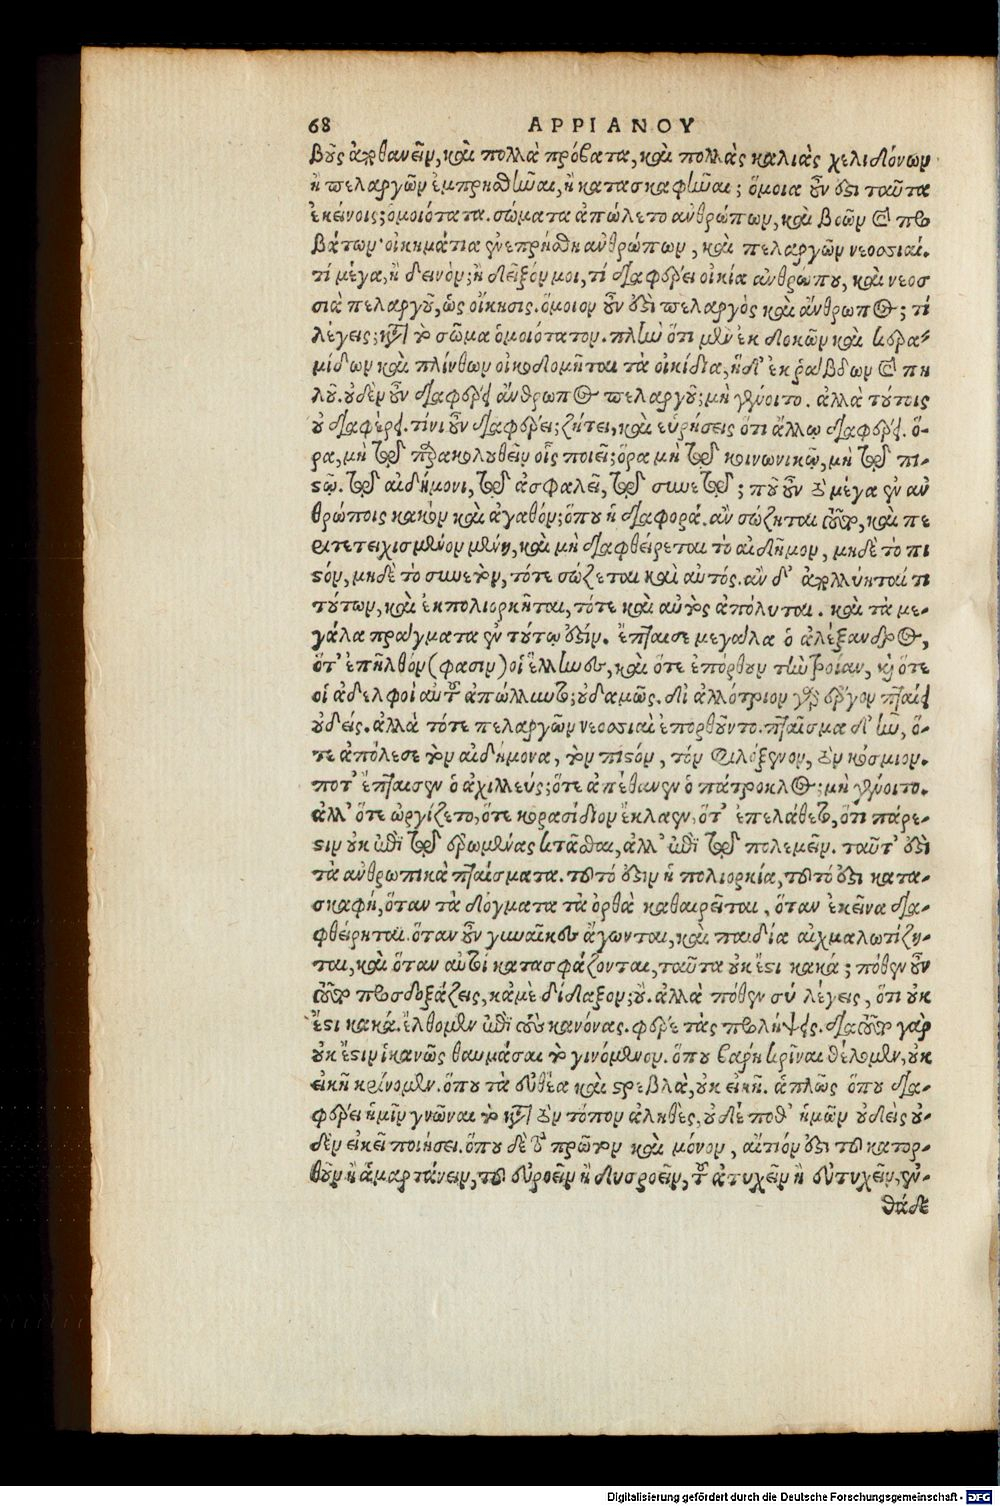 68
ΑΡΡΙΑΝΟΥ
βοῦς ἀποθανεῖν, καὶ πολλὰ πρόβατα, καὶ πολλὰς καλιὰς χελιδόνων
ἢ πελαργῶν ἐμπρησθῆναι, ἢ κατασκαφῆναι; ὅμοια οὖν ἐστι ταῦτα
ἐκείνοις; ὁμοιότατα. σώματα ἀπώλετο ἀνθρώπων, καὶ βοῶν καὶ προ
βάτων· οἰκημάτια ἐνεπρήσθη ἀνθρώπων, καὶ πελαργῶν νεοσσιαί.
τί μέγα, ἢ δεινόν; ἢ δεῖξόν μοι, τί διαφέρει οἰκία ἀνθρώπου, καὶ νεοσ
σιὰ πελαργοῦ, ὡς οἴκησις. ὅμοιον οὖν ἐστὶ πελαργὸς καὶ ἄνθρωπος; τί
λέγεις; κατὰ τὸ σῶμα ὁμοιότατον. πλὴν ὅτι μὲν ἐκ δοκῶν καὶ κερα-
μίδων καὶ πλίνθων οἰκοδομῆται τὰ οἰκίδια, ἡ δ' ἐκ ῥάβδων καὶ πη
λοῦ. οὐδὲν οὖν διαφέρει ἄνθρωπος πελαργοῦ; μὴ γένοιτο. ἀλλὰ τούτοις
οὐ διαφέρει. τίνι οὖν διαφέρει; ζήτει, καὶ εὑρήσεις ὅτι ἄλλῳ διαφέρει. ὅ-
ρα, μὴ τῷ παρακολουθεῖν οἷς ποιεῖ; ὅρα μὴ τῷ κοινωνικῷ, μὴ τῷ πι-
στῷ. τῷ αἰδήμονι, τῷ ἀσφαλεῖ, τῷ συνετῷ; ποῦ οὖν τὸ μέγα ἐν ἀν
θρώποις κακὸν καὶ ἀγαθόν; ὅπου ἡ διαφορά. ἂν σώζηται τοῦτο, καὶ πε
ριτετειχισμένον μένῃ, καὶ μὴ διαφθείρεται τὸ αἰδῆμον, μηδὲ τὸ πι
στόν, μηδὲ τὸ συνετόν, τότε σώζεται καὶ αὐτός. ἂν δ' ἀπολλύηταί τι
τούτων, καὶ ἐκπολιορκῆται, τότε καὶ αὐτὸς ἀπόλυται. καὶ τὰ με-
γάλα πράγματα ἐν τούτῳ ἐστίν. ἔπταισε μεγάλα ὁ ἀλέξανδρος,
ὅτ' ἐπῆλθόν (φασιν) οἱ ἕλληνες, καὶ ὅτε ἐπόρθουν τὴν τροίαν, καὶ ὅτε
οἱ ἀδελφοὶ αὐτοῦ ἀπώλλυντο; οὐδαμῶς. δι ἀλλότριον γὰρ ἔργον πταίει
οὐδείς. ἀλλὰ τότε πελαργῶν νεοσσιαὶ ἐπορθοῦντο. πταῖσμα δ' ἦν, ὅ-
τε ἀπόλεσε τὸν αἰδήμονα, τὸν πιστόν, τόν φιλόξενον, τὸν κόσμιον.
πότ' ἔπταισεν ὁ ἀχιλλεύς; ὅτε ἀπέθανεν ὁ πάτροκλος; μὴ γένοιτο.
ἀλλ' ὅτε ὠργίζετο, ὅτε κορασίδιον ἔκλαεν, ὅτ' ἐπελάθετο, ὅτι πάρε-
στιν οὐκ ἐπὶ τῷ ἐρωμένας κτᾶσθαι, ἀλλ' ἐπὶ τῷ πολεμεῖν. ταῦτ' ἐστὶ
τὰ ἀνθρωπικὰ πταίσματα. τοῦτό ἐστιν ἡ πολιορκία, τοῦτό ἐστι κατα-
σκαφή, ὅταν τὰ δόγματα τὰ ὀρθὰ καθαιρεῖται, ὅταν ἐκεῖνα δια-
φθείρηται. ὅταν οὖν γυναῖκες ἄγωνται, καὶ παιδία αἰχμαλωτίζη-
ται, καὶ ὅταν αὐτοὶ κατασφάζονται, ταῦτα οὐκ ἔστι κακά; πόθεν οὖν
τοῦτο προσδοξάζεις, κἀμὲ δίδαξον; οὔ. ἀλλὰ πόθεν σύ λέγεις, ὅτι οὐκ
ἔστι κακά. ἔλθομεν ἐπὶ τοὺς κανόνας. φέρε τὰς προλήψεις. διὰ τοῦτο γὰρ
οὐκ ἔστιν ἱκανῶς θαυμάσαι τὸ γινόμενον. ὅπου βάρη κρῖναι θέλομεν, οὐκ
εἰκῆ κρίνομεν. ὅπου τὰ εὐθέα καὶ στρεβλὰ, οὐκ εἰκῆ. ἁπλῶς ὅπου δια-
φέρει ἡμῖν γνῶναι τὸ κατὰ τὸν τόπον ἀληθὲς, οὐδέ ποθ' ἡμῶν οὐδεὶς οὐ-
δὲν εἰκῆ ποιήσει. ὅπου δὲ τὸ πρῶτον καὶ μόνον, αἴτιόν ἐστι τοῦ κατορ-
θοῦν ἢ ἁμαρτάνειν, τοῦ εὐροεῖν ἢ δυσροεῖν, τοῦ ἀτυχεῖν ἢ εὐτυχεῖν, ἐν-
θάδε
Digitalisierung gefördert durch die Deutsche Forschungsgemeinschaft - DFG